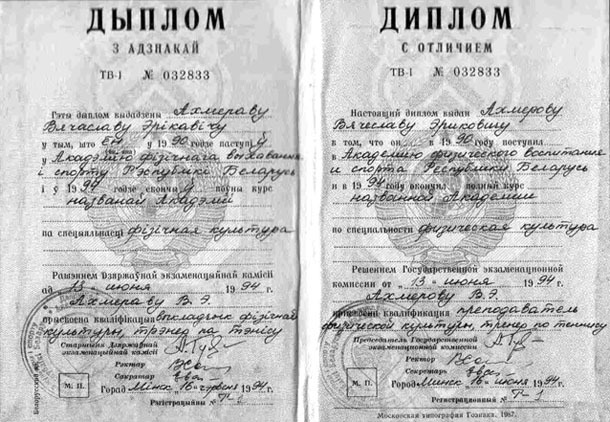 ДЫПЛОМ
З АДЗНАКАЙ
ТВ-I № 032833
Гэты дыплом выдадзены Ахмераву
Вячаславу Эрікавічу
у тым, што ён у 1990 годзе паступіў
у Акадэмію фізічнага выхавання
і спорту Рэспублікі Беларусь
і ў 1994 годзе скончыў поўны курс
названай Акадэміі
па спецыяльнасці фізічная культура
Рашэннем Дзяржаўнай экзаменацыйнай камісіі
ад 13 июня 1994 г.
Ахмераву В.Э.
прысвоена кваліфікацыя выкладчык фізічнай
культуры, трэнер па тэнісу
Старшыня Дзяржаўнай
экзаменацыйнай камісіі
Рэктар
Сакратар
М. П.
Горад Мінск 16 чэрвеня 1994 г.
Рэгістрацыйны № Т-1
ДИПЛОМ
С ОТЛИЧИЕМ
ТВ-I № 032833
Настоящий диплом выдан Ахмерову
Вячеславу Эриковичу
в том, что он в 1990 году поступил
в Академию физического воспитания
и спорта Республики Беларусь
и в 1994 году окончил полный курс
названной Академии
по специальности физическая культура
Решением Государственной экзаменационной
комиссии от „13" июня 1994 г.
Ахмерову В.Э.
присвоена квалификация преподаватель
физической культуры, тренер по теннису
Председатель Государственной
экзаменационной комиссии
Ректор
Секретарь
М. П.
Город Минск 16 июня 1994 г.
Регистрационный № Т-1
Московская типография Гознака. 1987.